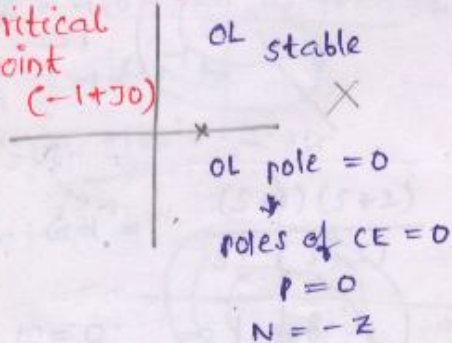 ritical
oint
(-1+J0)
OL stable
X
OL pole = 0
poles of CE = 0
P = 0
N = -Z